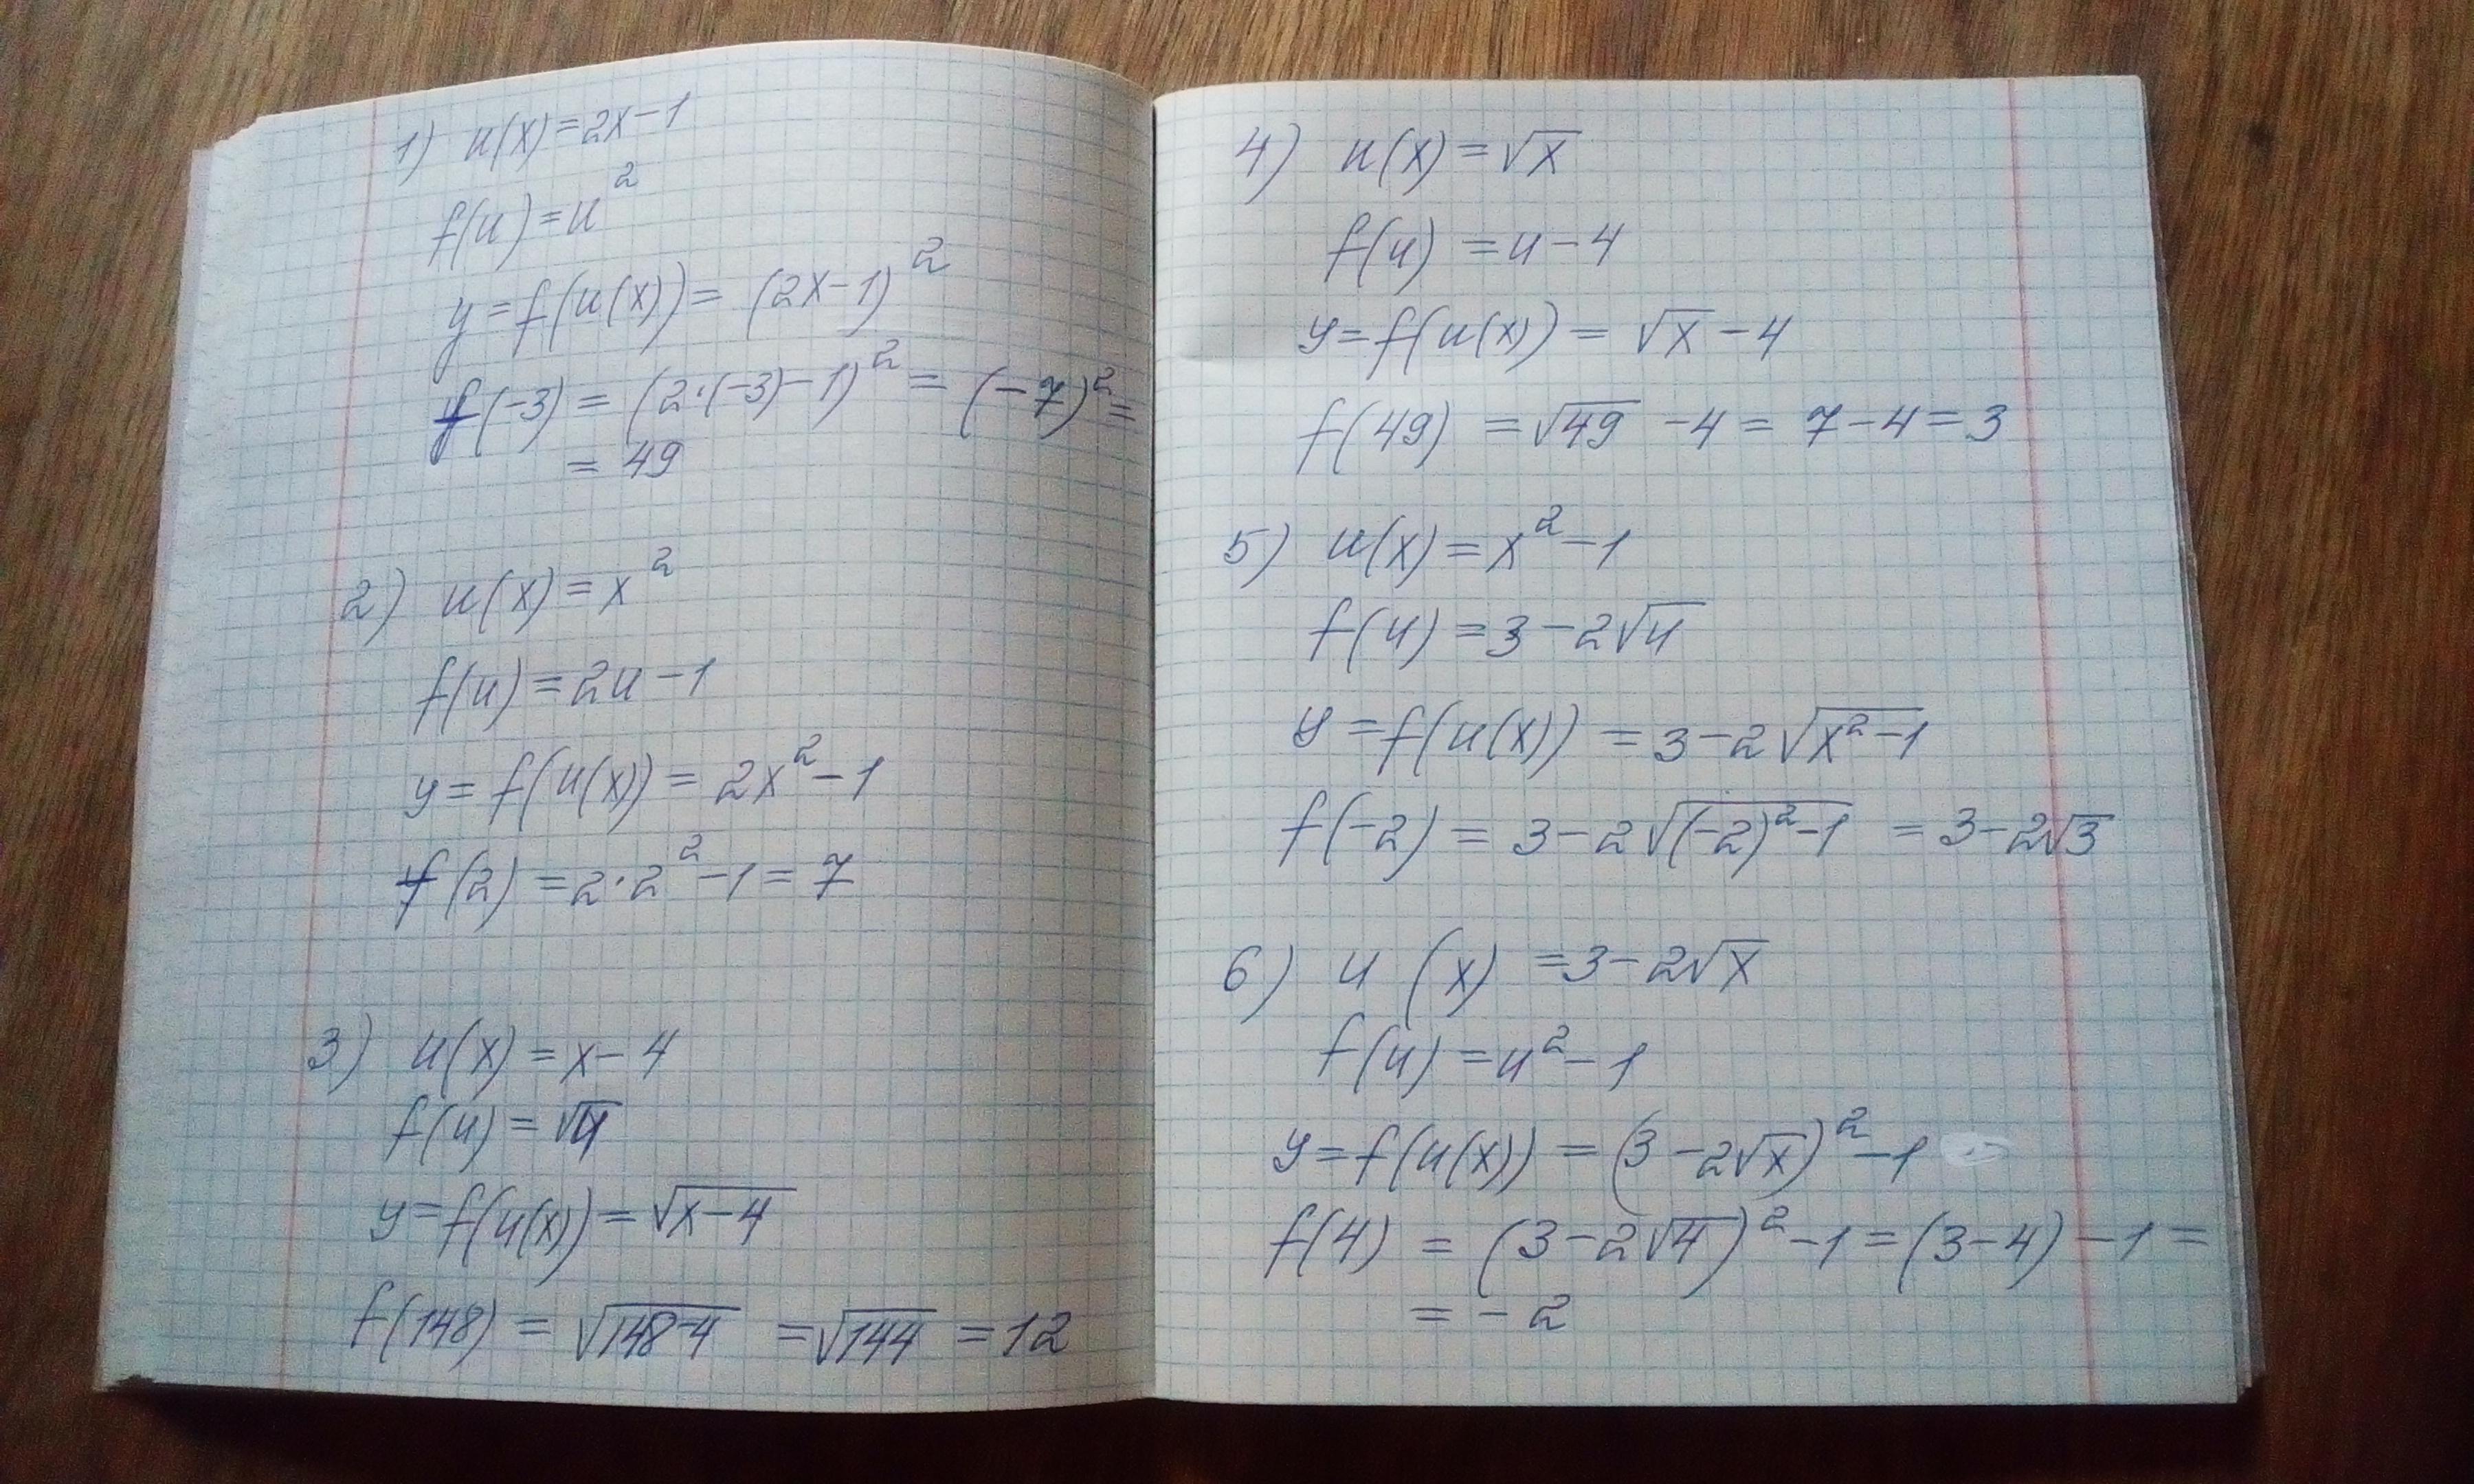 1) u(x)=2x-1
f(u)=u²
y=f(u(x))=(2x-1)²
f(-3)=(2·(-3)-1)²=(-7)²=
=49
2) u(x)=x²
f(u)=2u-1
y=f(u(x))=2x²-1
f(2)=2·2²-1=7
3) u(x)=x-4
f(u)=√u
y=f(u(x))=√(x-4)
f(148)=√(148-4)=√144=12
4) u(x)=√x
f(u)=u-4
y=f(u(x))=√x-4
f(49)=√49-4=7-4=3
5) u(x)=x²-1
f(u)=3-2√u
y=f(u(x))=3-2√(x²-1)
f(-2)=3-2√((-2)²-1)=3-2√3
6) u(x)=3-2√x
f(u)=u²-1
y=f(u(x))=(3-2√x)²-1
f(4)=(3-2√4)²-1=(3-4)-1=
=-2